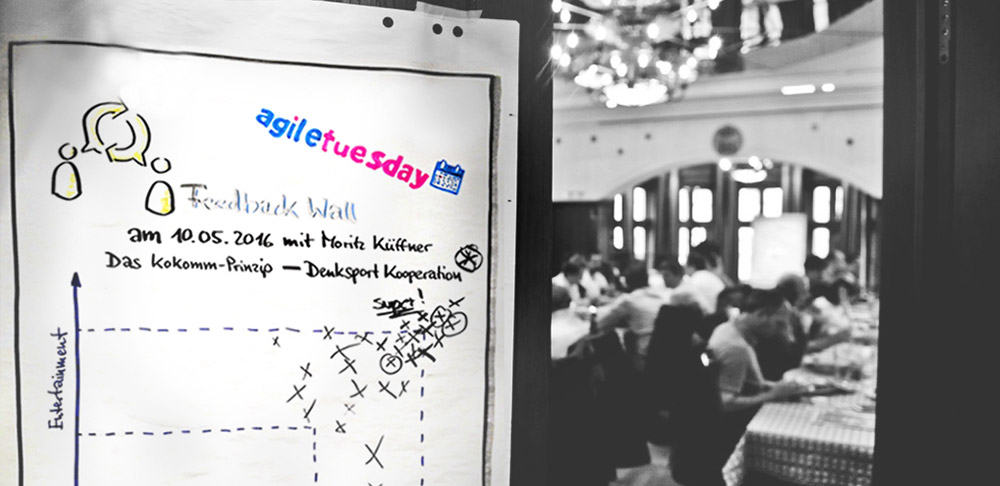 agiletuesday
Feedback Wall
am 10.05.2016 mit Moritz Küffner
Das Kokomm-Prinzip – Denksport Kooperation
super!
Entertainment